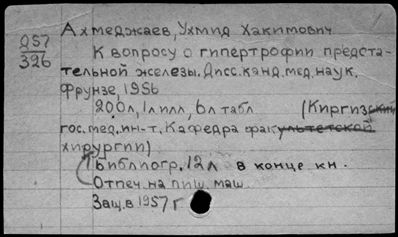 Д57
326
Ахмеджаев, Ухмид Хакимович
К вопросу о гипертрофии предста-
тельной железы. Дисс. канд. мед. наук.
Фрунзе, 1956
200л, 1л илл, 6л табл (Киргизский
гос. мед. ин-т. Кафедра факультетской
хирургии)
Библиогр. 12л в конце кн.
Отпеч. на пиш. маш.
Защ. в 1957 г